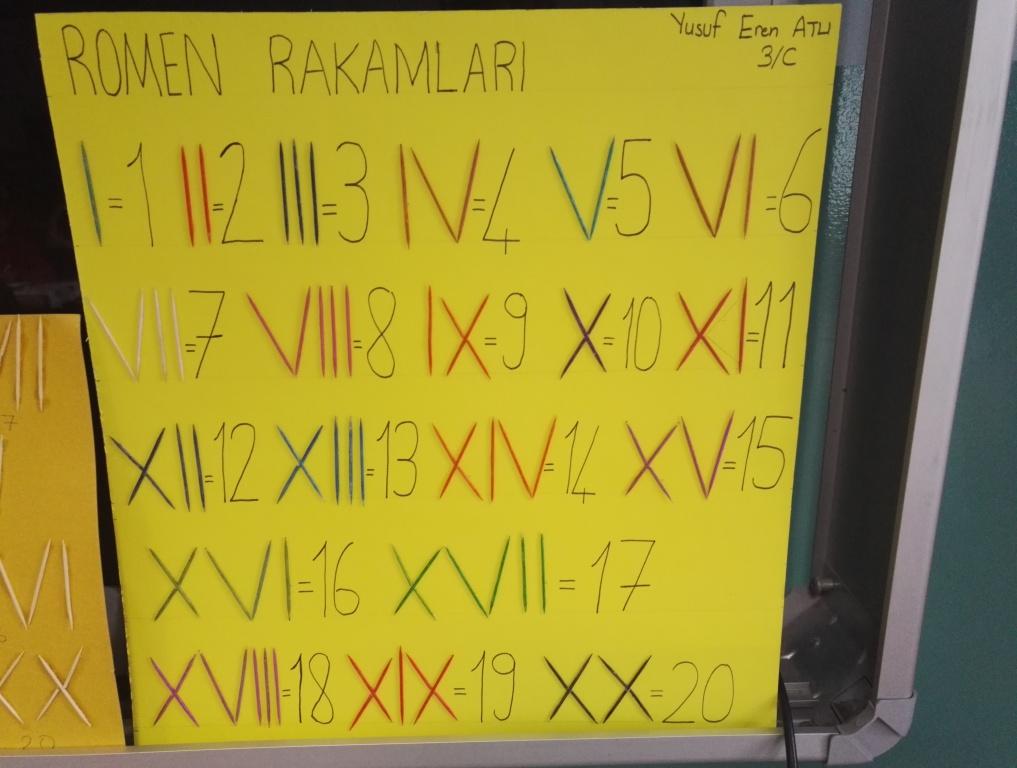 ROMEN RAKAMLARI
Yusuf Eren ATLI
3/C
I=1 II=2 III=3 IV=4 V=5 VI=6
VII=7 VIII=8 IX=9 X=10 XI=11
XII=12 XIII=13 XIV=14 XV=15
XVI=16 XVII=17
XVIII=18 XIX=19 XX=20
7
20